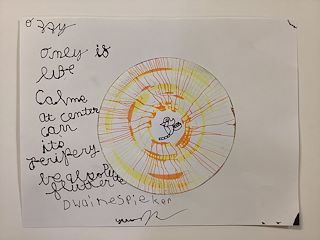 ozzy
only is
life
Calme
at center
can
its
perifery
be absolute
flutter
Dwaine Spieker